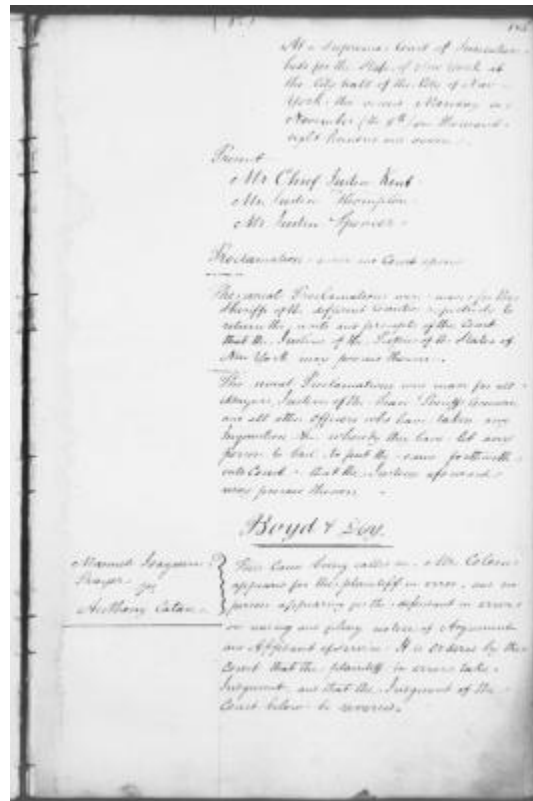 At a Supreme Court of Judicature
held for the State of New York at
the City Hall of the City of New
York the Monday in
November (the 9th) one thousand
eight hundred and seven
Present
Mr Chief Justice Kent
Mr Justice Thompson
Mr Justice Spencer
Proclamation made and Court opened
The usual Proclamations were made for the
Sheriffs of the different Counties to
return the writs and precepts of the Court
that the Justices of the People of the State of
New York may proceed thereon.
The usual Proclamations were made for all
Justices of the Peace Coroners
and all other officers who have taken any
Inquisition whereby they have let any
person to bail to put the same forthwith
into Court that the Justices aforesaid
may proceed thereon
Boyd & Day.
Manuel
vs
Anthony Catan
This Cause being called on Mr Colden
appears for the plaintiff in error and no
person appearing for the defendant in error
on reading and filing notice of Argument
and Affidavit of service It is ordered by the
Court that the plaintiff in error take
Judgment and that the Judgment of the
Court below be reversed.